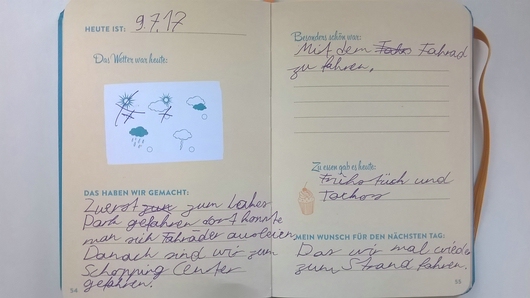 HEUTE IST: 9.7.17
Das Wetter war heute:
DAS HABEN WIR GEMACHT:
Zuerst zum
Park gefahren dort konnte
man sich Fahräder ausleien.
Danach sind wir zum
Schopping Center
gefahren.
54
Besonders schön war:
Mit dem Fahrad
zu fahren.
Zu essen gab es heute:
Frühstück und
Tachos
MEIN WUNSCH FÜR DEN NÄCHSTEN TAG:
Das wir mal wieder
zum Strand fahren.
55